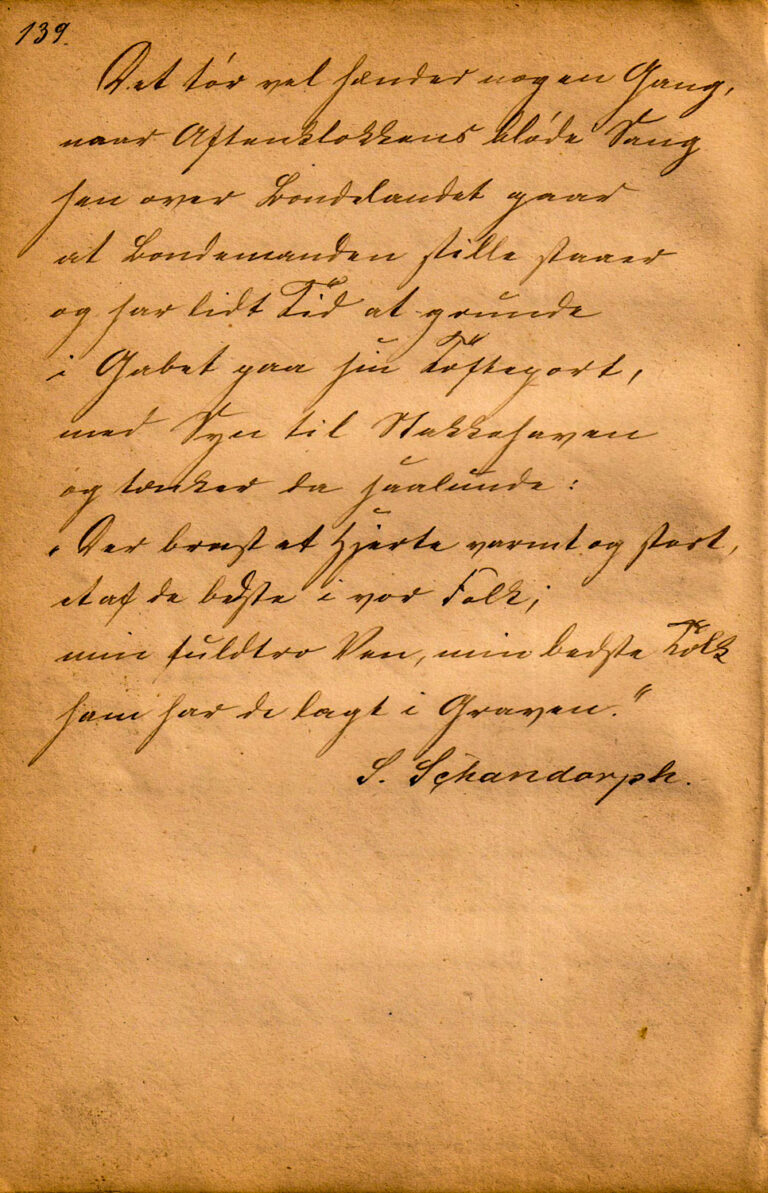 139.
Det tør vel hændes nogen Gang,
naar Aftenklokkens bløde Sang
hen over Bondelandet gaar
at Bondemanden stille staaer
og har lidt Tid at grunde
i Gabet paa sin Tofteport,
med Syn til Stakkehaven
og tænker da saalunde:
„Der brast et Hjerte varmt og stort,
et af de bedste i vor Folk;
min fuldtro Ven, min bedste Tolk
ham har de lagt i Graven."
S. Schandorph.